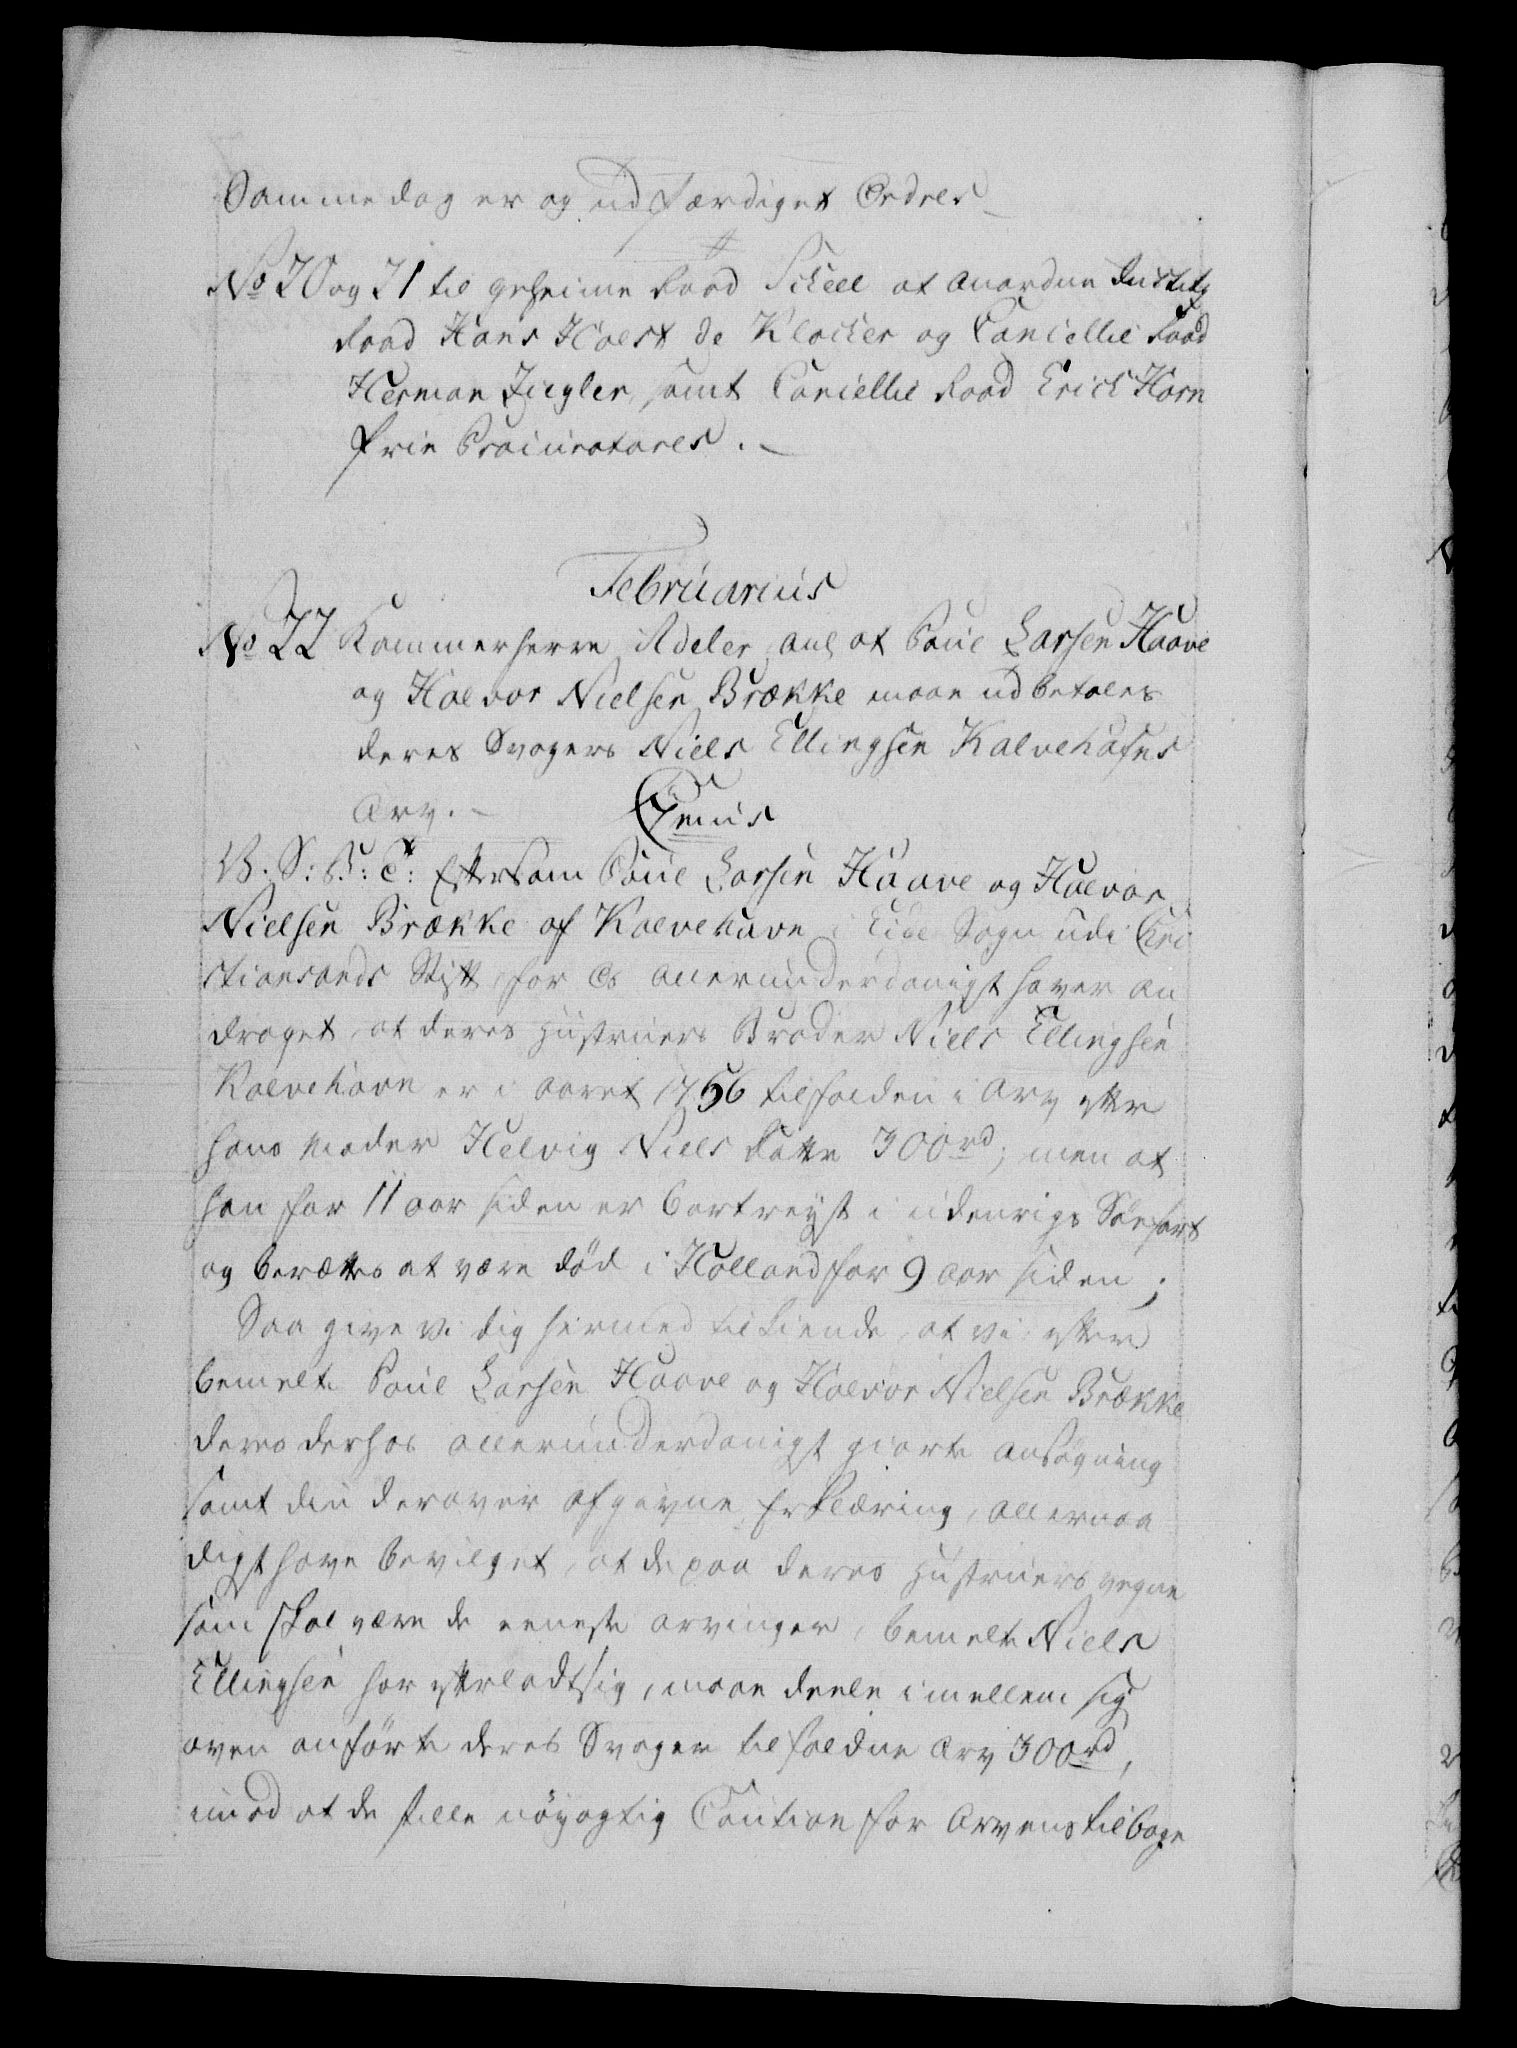 Samme dag er og udfærdiget Ordres
No 20 og 21 til geheime Raad Scheel at anordne Justitz
Raad Hans Holst de Klocker og Cancellie Raad
Herman Ziegler, samt Cancellie Raad Erich Horn
frie Procuratores.
Februarius
No 22 Kammerherre Adeler, anl. at Poul Larsen Haave
og Halvor Nielsen Brække maae udbetales
deres Svogers Niels Ellingsen Kalvehafns
Arv.
1mus
V. S: G: T: Eftersom Poul Larsen Haave og Halvor
Nielsen Brække af Kalvehavn i Eide Sogn udi Chri
stiansands Stift, for Os allerunderdanigst haver an
draget, at deres Hustruers Broder Niels Ellingsen
Kalvehavn er i Aaret 1756 tilfalden i Arv efter
hans Moder Helvig Niels Datter 300 rd; men at
han for 11 aar siden er bortreyst i udenrigs Søefart
og berettes at være død i Holland for 9 Aar siden;
Saa give Vi dig hermed tilkiende, at vi, efter
bemelte Poul Larsen Haave og Halvor Nielsen Brække
deres derhos allerunderdanigst giorte ansøgning
samt din derover afgivne Erklæring, allernaa
digst have bevilget, at de paa deres Hustruers vegne
som skal være de eeneste arvinger, bemelte Niels
Ellingsen har efterladt sig, maae deele imellem sig
oven anførte deres Svoger tilfaldne Arv 300 rd,
imod at de stille nøyagtig Caution for Arvens tilbage